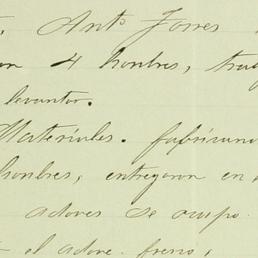 Anto Torres
on 4 hombres, tra
levantar.
Materiales. fabricano
hombres, entregaron en
adoves se ocupo
el adove fresno,